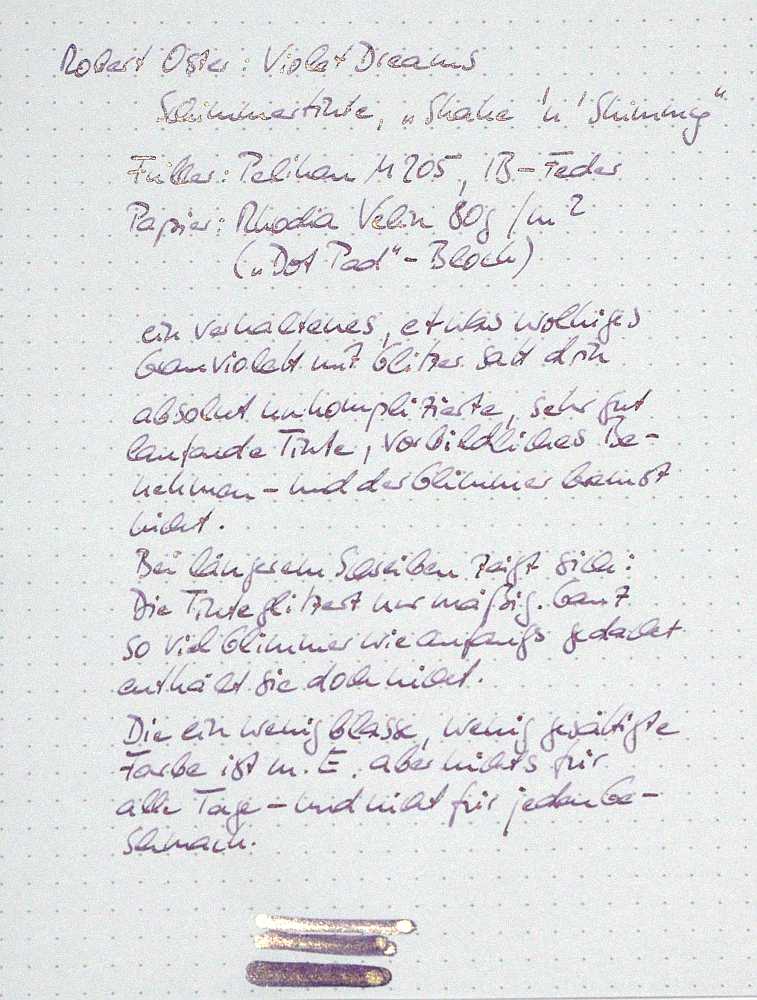 Robert Oster: Violet Dreams
Schimmertinte, „Shake 'n' Shimmy"
Füller: Pelikan M205, IB-Feder
Papier: Rhodia Velin 80g/m²
(„Dot Pad"-Block)
ein verhaltenes, etwas wolkiges
Grauviolett mit Glitzer satt drin
absolut unkomplizierte, sehr gut
laufende Tinte, vorbildliches Be-
nehmen - und der Glimmer bremst
nicht.
Bei längerem Schreiben zeigt sich:
Die Tinte glitzert nur mäßig. Ganz
so viel Glimmer wie anfangs gedacht
enthält sie doch nicht.
Die ein wenig blasse, wenig gesättigte
Farbe ist m. E. aber nichts für
alle Tage - und nicht für jeden Ge-
schmack.